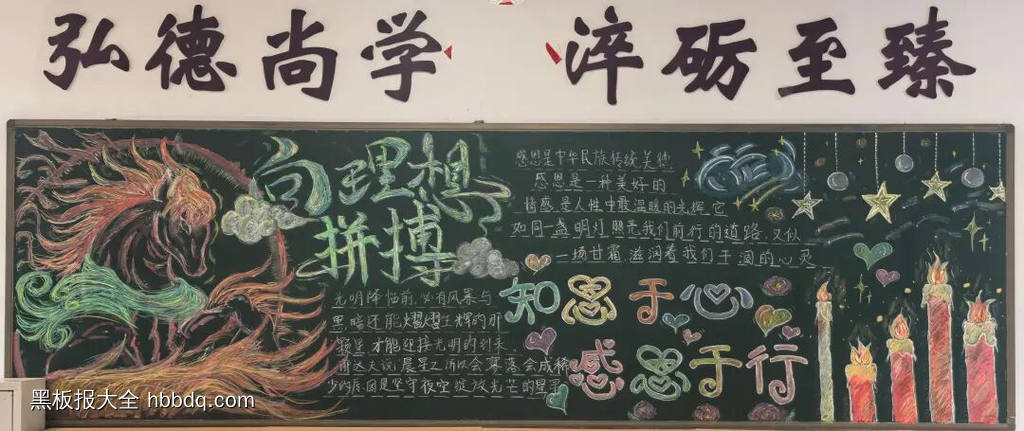 弘德尚学 淬砺至臻
向理想
拼博
光明降临前,必有风暴与
黑暗还能熠熠生辉的那
颗星才能迎接光明的到来
有这天说晨星之所以会寥落会成稀
少的原因是坚守夜空绽放光芒的星星
感恩是中华民族传统美德
感恩是一种美好的
情感是人性中最温暖的光辉,它
如同一盏明灯照亮我们前行的道路,又似
一场甘霜,滋润着我们干涸的心灵
知恩于心
感恩于行
黑板报大全 hbbdq.com